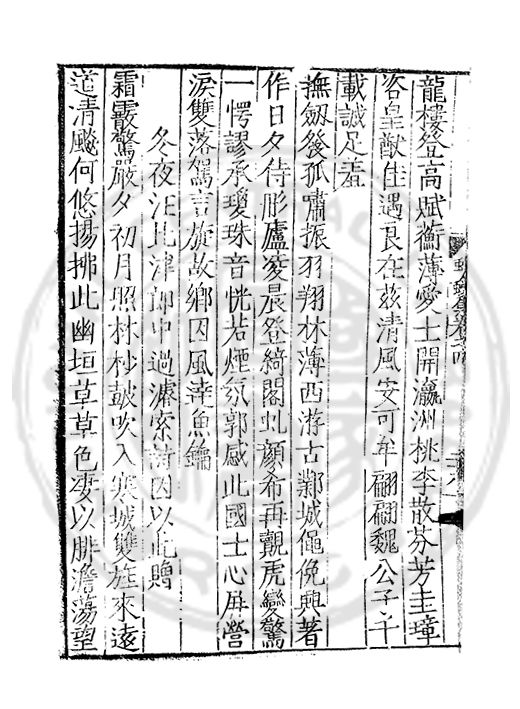 龍樓登高賦蘅薄愛士開瀛洲桃李散芬芳圭璋
咨皇猷佳遇良在茲清風安可牟翩翩魏公子千
載誠足羞
撫劔發孤嘯振羽翔林薄西游古鄴城僶俛興著
作日夕待彤廬凌晨登綺閣虬顏希再覩虎變驚
一愕謬承瓊珠音恍若煙氛郭感此國士心屏營
淚雙落駕言旋故鄉因風達魚鑰
冬夜汪比津郎中過濾索詩因以此贈
霜霰驚嚴夕初月照林杪鼓吹入寒城雙旌來遠
道清飈何悠揚拂此幽垣草草色凄以腓澹蕩望